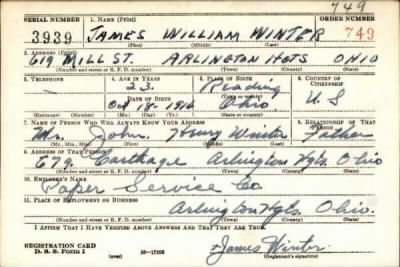 749
SERIAL NUMBER 1. NAME (Print) ORDER NUMBER
3939 JAMES WILLIAM WINTER 749
(First) (Middle) (Last)
2. ADDRESS (Print)
619 MILL ST. ARLINGTON HGTS OHIO
(Number and street or R. F. D. number) (Town) (County) (State)
3. TELEPHONE 4. AGE IN YEARS 5. PLACE OF BIRTH 6. COUNTRY OF CITIZENSHIP
23 Reading
DATE OF BIRTH
Oct 18 1916 Ohio U.S
(Exchange) (Number) (Mo.) (Day) (Yr.) (State or country)
7. NAME OF PERSON WHO WILL ALWAYS KNOW YOUR ADDRESS 8. RELATIONSHIP OF THAT PERSON
Mr. John Henry Winter Father
(Mr., Mrs., Miss) (First) (Middle) (Last)
9. ADDRESS OF THAT PERSON
679 Carthage Arlington Hgts. Ohio
(Number and street or R. F. D. number) (Town) (County) (State)
10. EMPLOYER'S NAME
Paper Service Co
11. PLACE OF EMPLOYMENT OR BUSINESS
Arlington Hgts. Ohio.
(Number and street or R. F. D. number) (Town) (County) (State)
I AFFIRM THAT I HAVE VERIFIED ABOVE ANSWERS AND THAT THEY ARE TRUE.
REGISTRATION CARD
D. S. S. Form 1 (over) 16-17105
James Winter
(Registrant's signature)